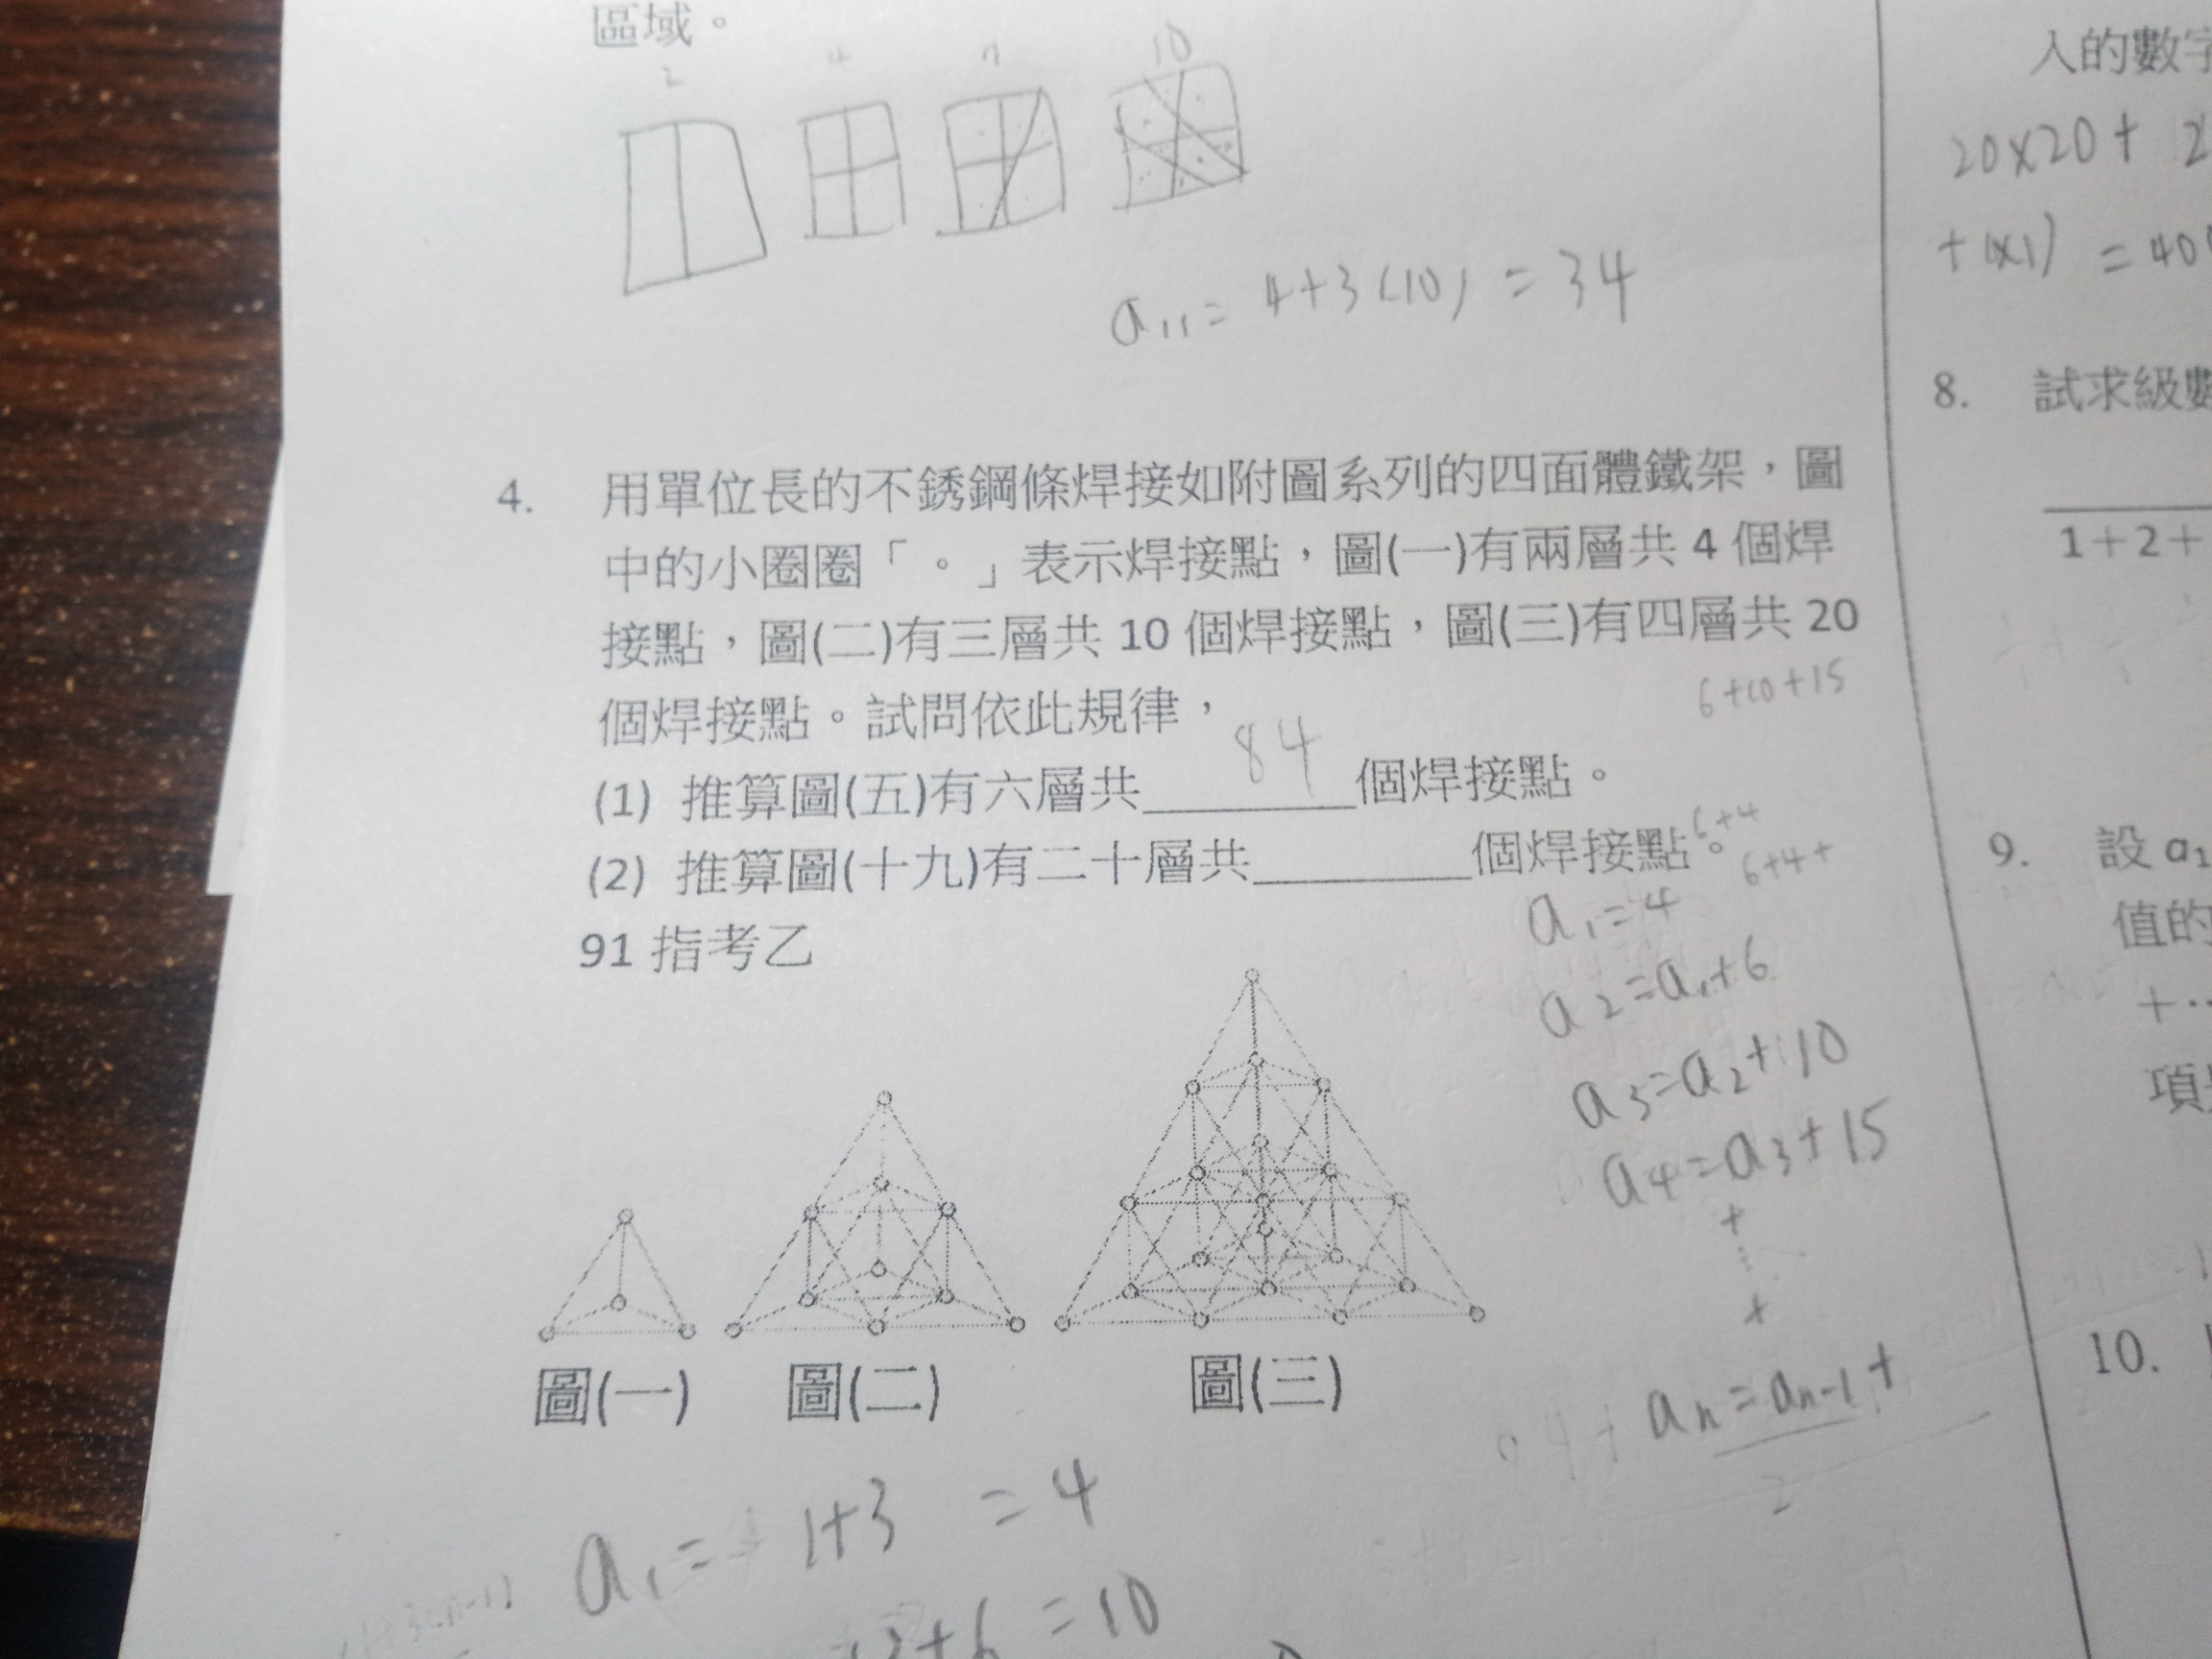 區域。
2 4 7 10
a₁₁ = 4+3(10) = 34
4. 用單位長的不銹鋼條焊接如附圖系列的四面體鐵架，圖
中的小圈圈「。」表示焊接點，圖(一)有兩層共 4 個焊
接點，圖(二)有三層共 10 個焊接點，圖(三)有四層共 20
個焊接點。試問依此規律，
6+10+15
(1) 推算圖(五)有六層共 84 個焊接點。
(2) 推算圖(十九)有二十層共________個焊接點。
6+4
6+4+
91 指考乙
a₁=4
a₂=a₁+6
a₃=a₂+10
a₄=a₃+15
+
⋮
+
aₙ=aₙ₋₁+
2
圖(一) 圖(二) 圖(三)
a₁= 1+3 =4
+6 =10
入的數字
20×20+ 2
+1×1) =40
8. 試求級數
1+2+
9. 設 a₁
值的
+⋯
項
10.